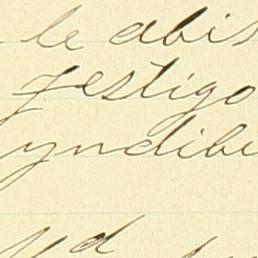 le abis
festigo
yndibi